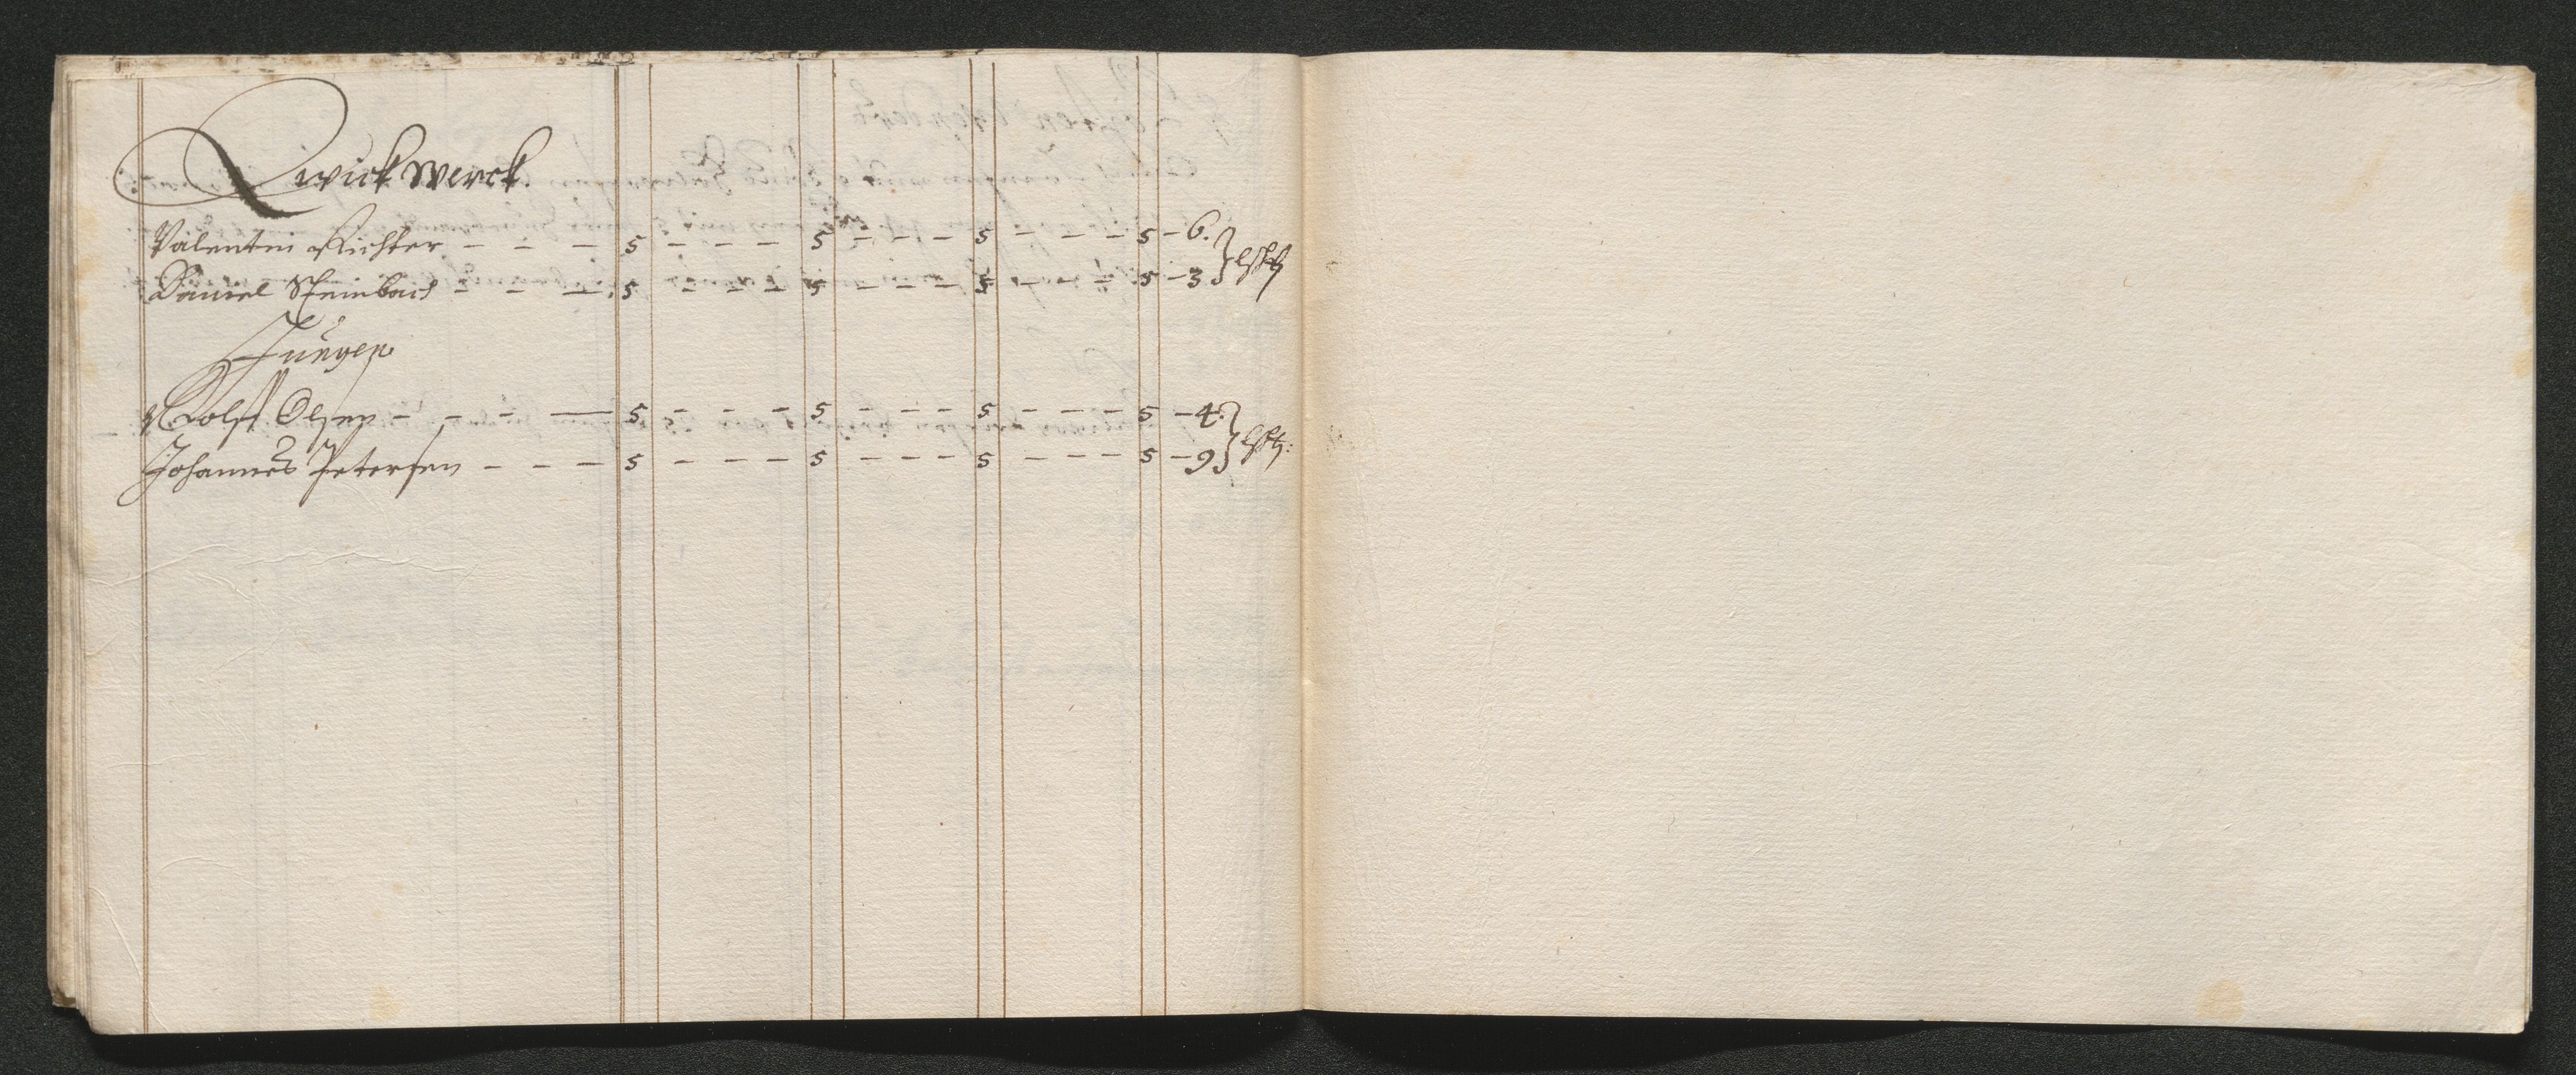 Qwickwerck.
Valentin Richter - - - 5 - - - 5 - - - 5 - - - 5 - 6.
Daniel Steinbach - - - 5 - - - 5 - - - 5 - - - 5 - 3
Jungen
Rolff Olsen - - - — 5 - - - 5 - - - 5 - - - 5 - 4.
Johannes Petersen - - - 5 - - - 5 - - - 5 - - - 5 - 9